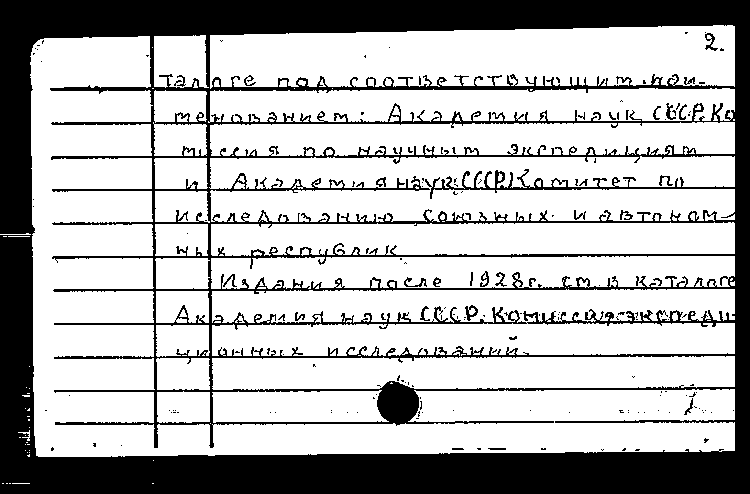 2.
талоге под соответствующим наи-
менованием: Академия наук СССР. Ко
миссия по научным экспедициям
и Академия наук СССР. Комитет по
исследованию союзных и автоном-
ных республик.
Издания после 1928г. см. в каталоге
Академия наук СССР. Комиссия экспеди-
ционных исследований.